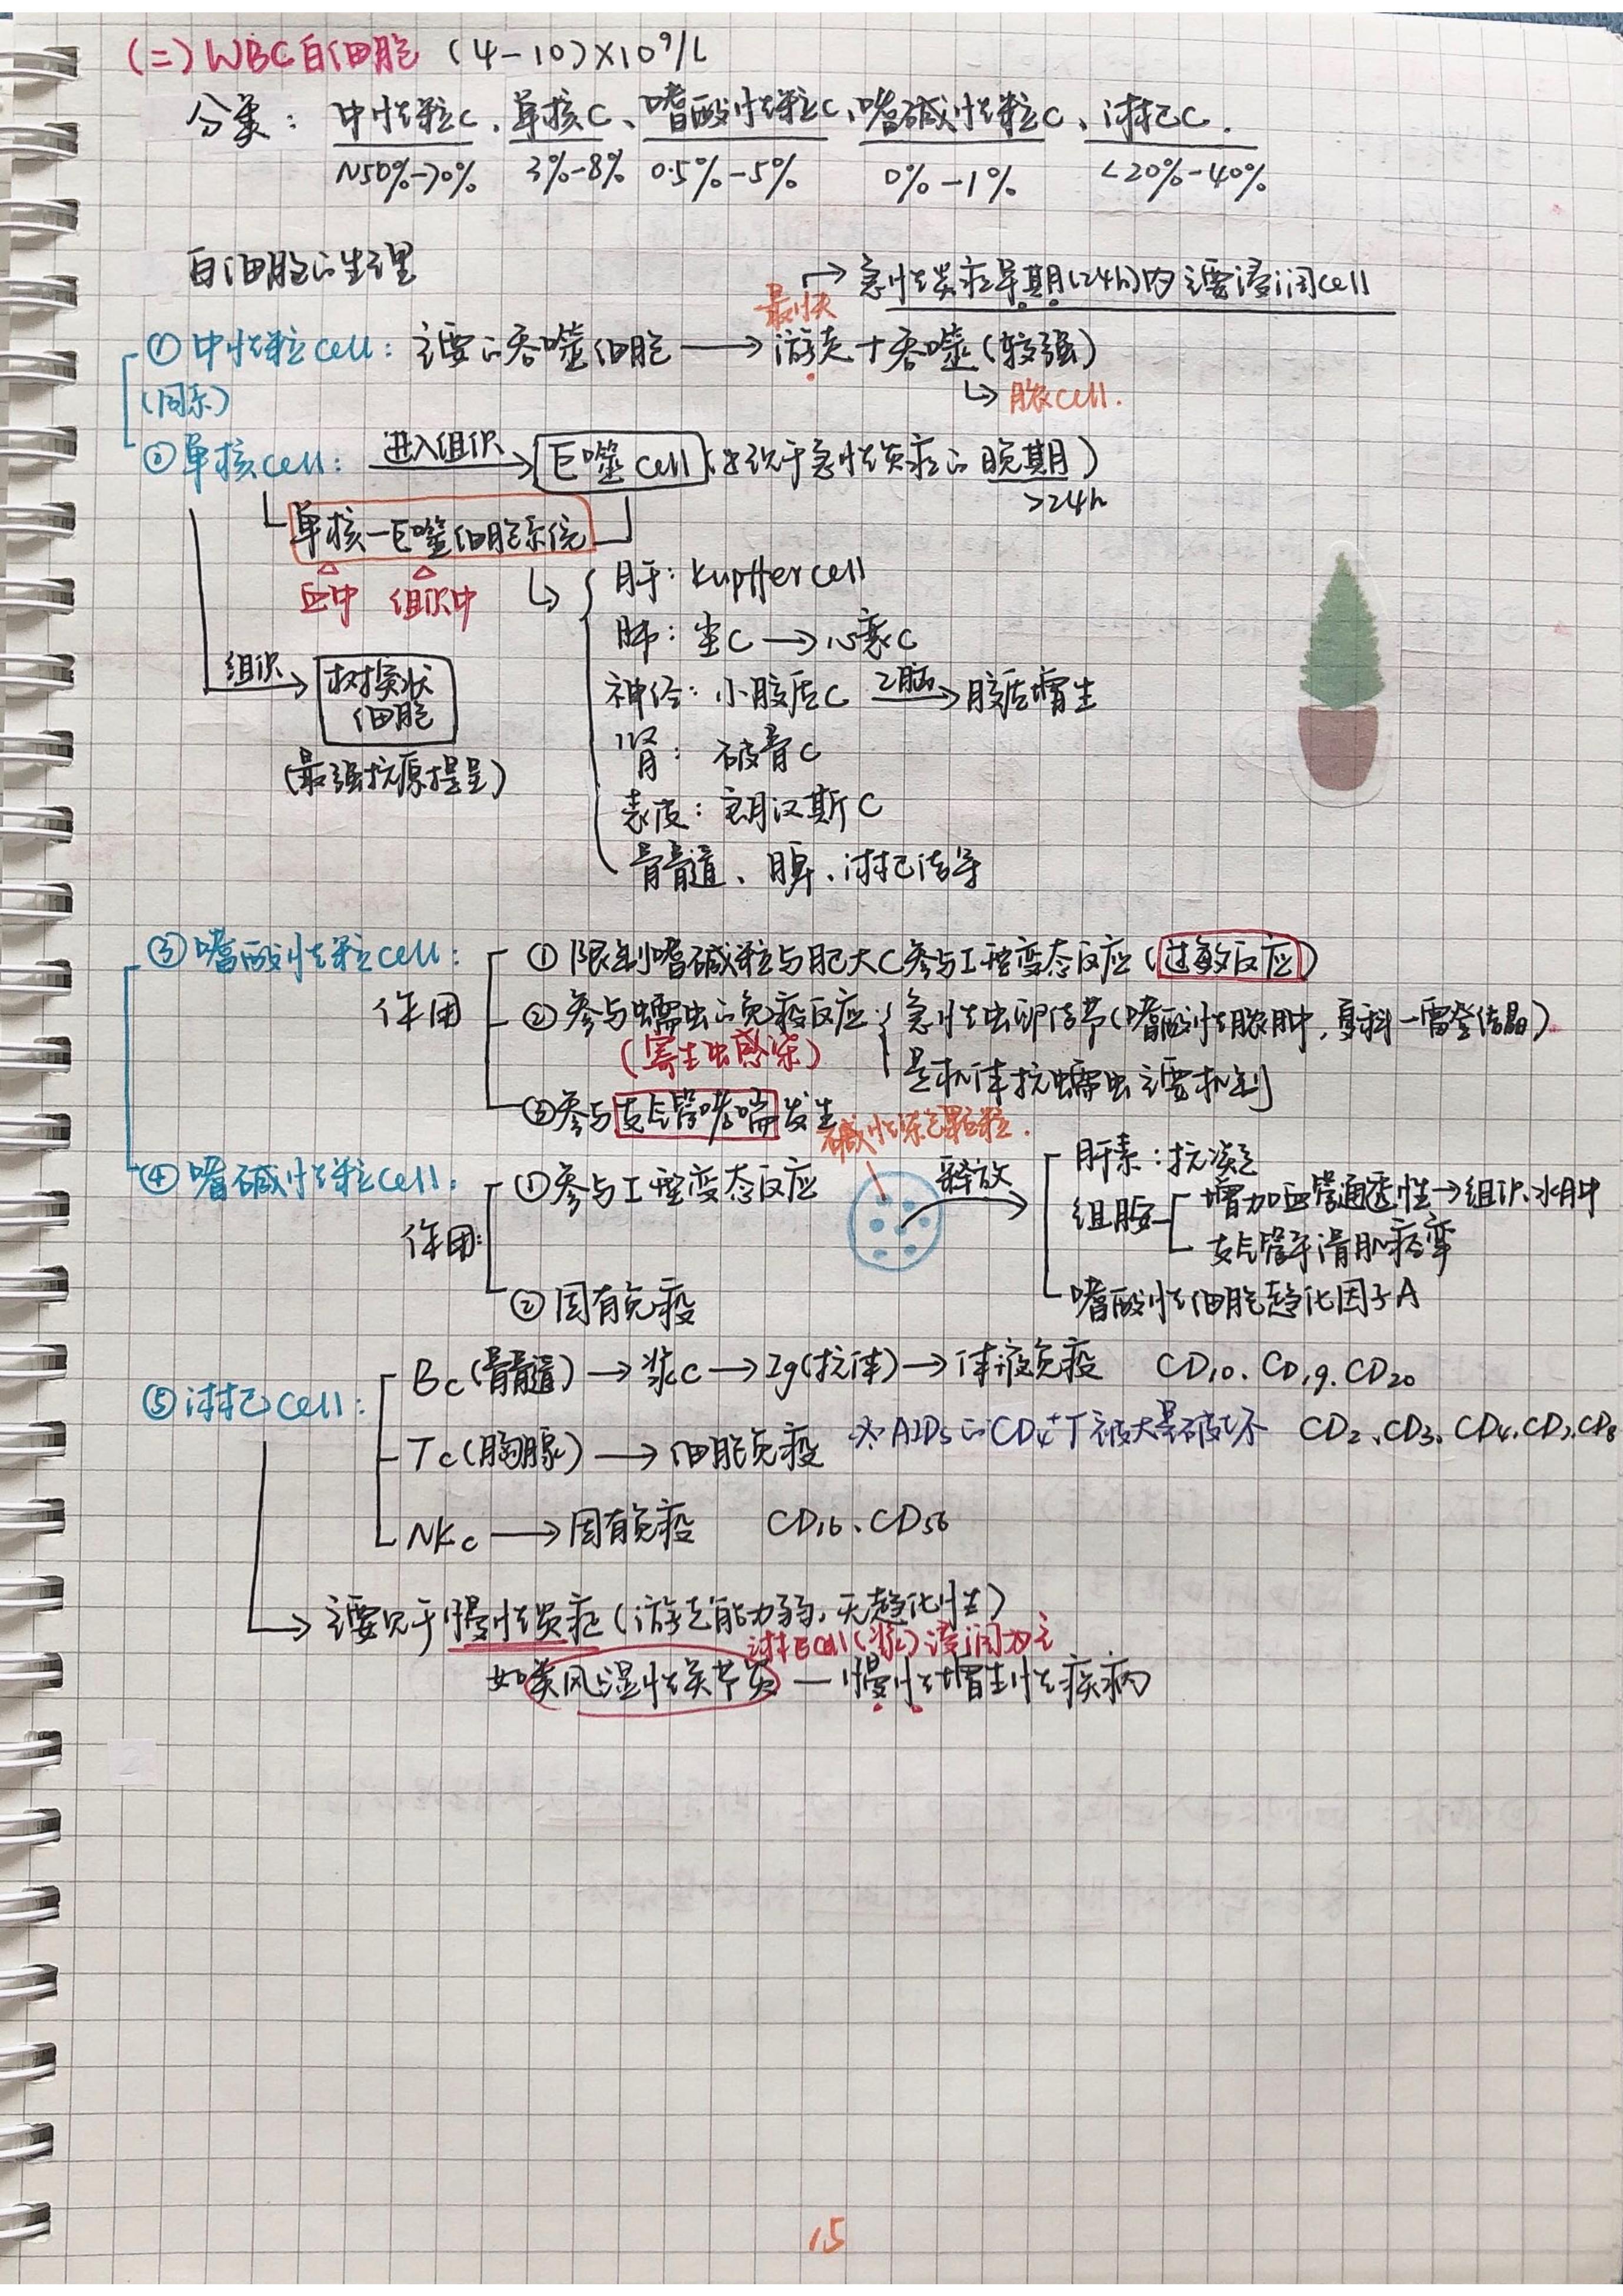 (二)WBC白细胞 (4-10)×10⁹/L
分类: 中性粒C、单核C、嗜酸性粒C、嗜碱性粒C、淋巴C.
N50%-70% 3%-8% 0.5%-5% 0%-1% <20%-40%
白细胞的生理
→急性炎症早期(24h)内主要浸润cell
最快
①中性粒cell: 主要的吞噬细胞→游走+吞噬(较强)
(同系)
↳脓cell.
②单核cell: 进入组织→巨噬cell(出现于急性炎症的晚期)
>24h
单核-巨噬细胞系统
血中 组织中
肝: kupffer cell
肺: 尘C→心衰C
组织→树突状
细胞
神经: 小胶质C 乙脑→胶质增生
(最强抗原提呈)
肾: 破骨C
表皮: 朗汉斯C
骨髓、脾、淋巴结等
③嗜酸性粒cell: ①限制嗜碱粒与肥大C参与I型变态反应(过敏反应)
作用 ②参与蠕虫的免疫反应: 急性虫卵结节(嗜酸性脓肿,夏科-雷登结晶)
(寄生虫感染) 是机体抗蠕虫主要机制
③参与支气管哮喘发生
碱性染色颗粒.
④嗜碱性粒cell: ①参与I型变态反应 释放
肝素: 抗凝
组胺 增加血管通透性→组织水肿
支气管平滑肌痉挛
作用:
②固有免疫
嗜酸性细胞趋化因子A
⑤淋巴cell: Bc(骨髓)→浆C→Ig(抗体)→体液免疫 CD10、CD19、CD20
Tc(胸腺)→细胞免疫 ※AIDs的CD4⁺T被大量破坏 CD2、CD3、CD4、CD7、CD8
NKc→固有免疫 CD16、CD56
→主要见于慢性炎症(游走能力弱,无趋化性)
淋巴cell(浆c)浸润为主
如类风湿性关节炎—慢性增生性疾病
15